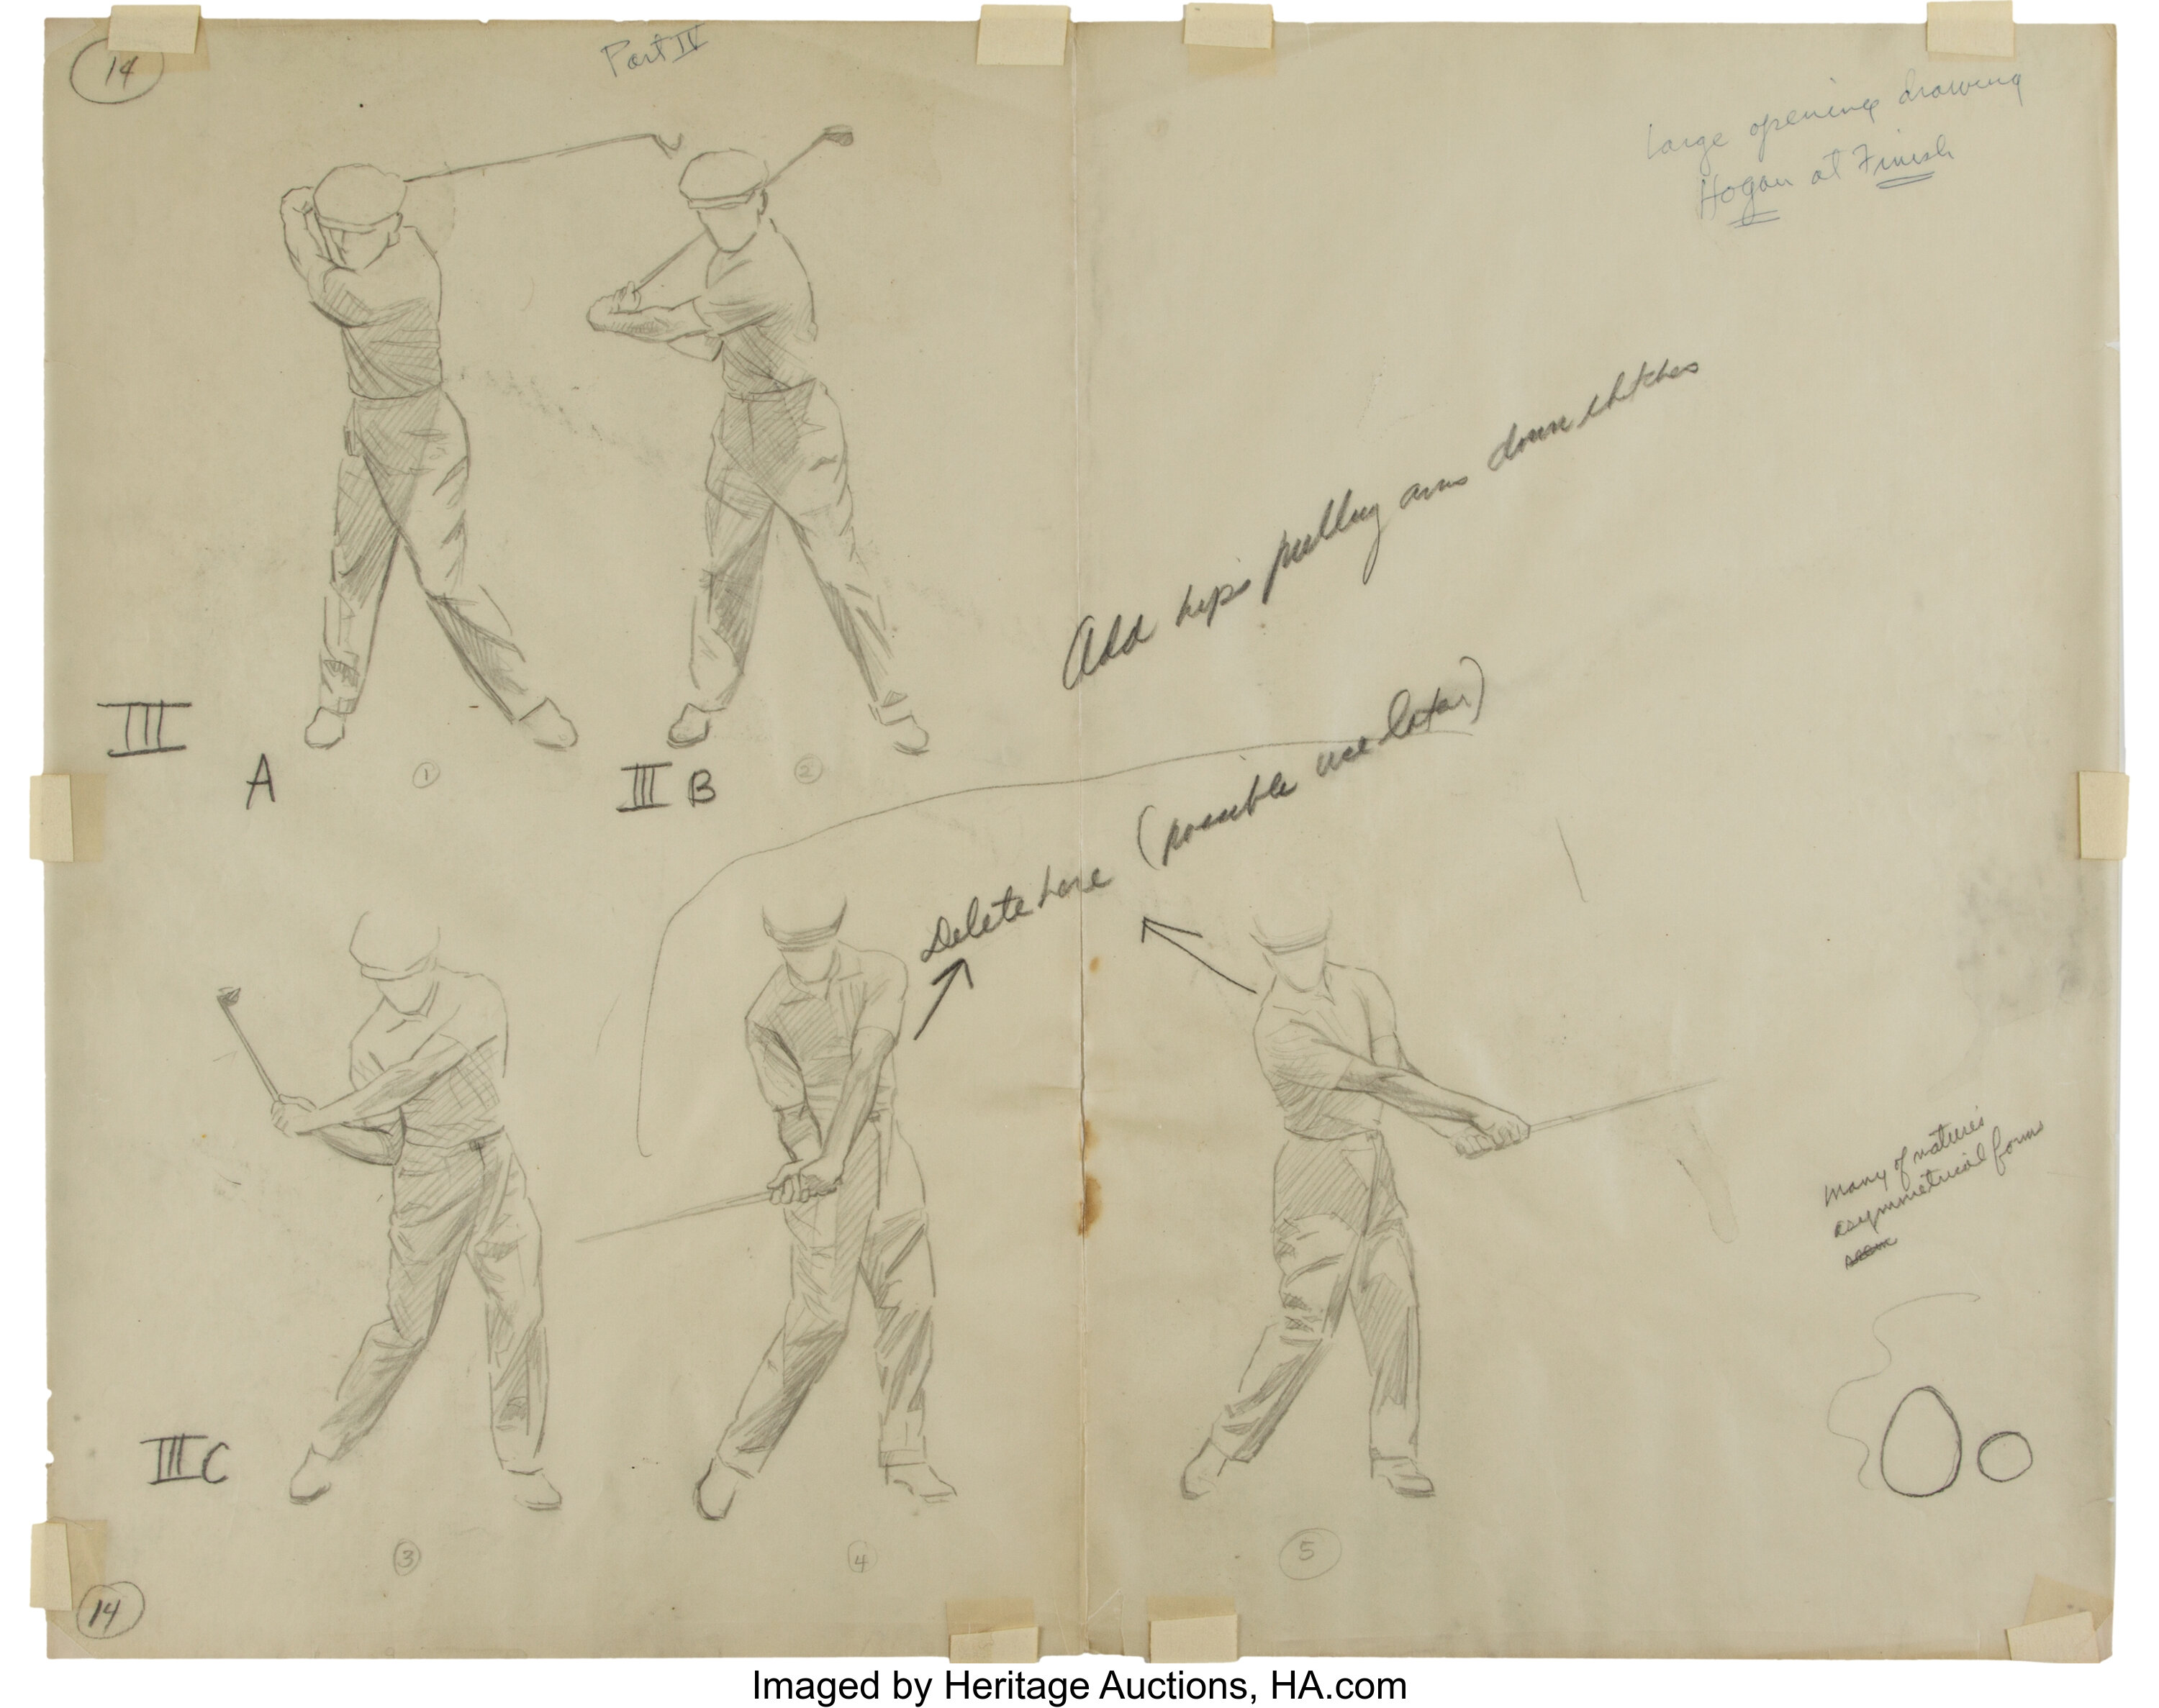 14
Part IV
Large opening drawing
Hogan at Finish
Add hips pulling arms down
III
A
1
III B
2
Delete here (possible use later)
Many of nature's
asymmetrical forms
seem
III C
3
4
5
14
Imaged by Heritage Auctions, HA.com